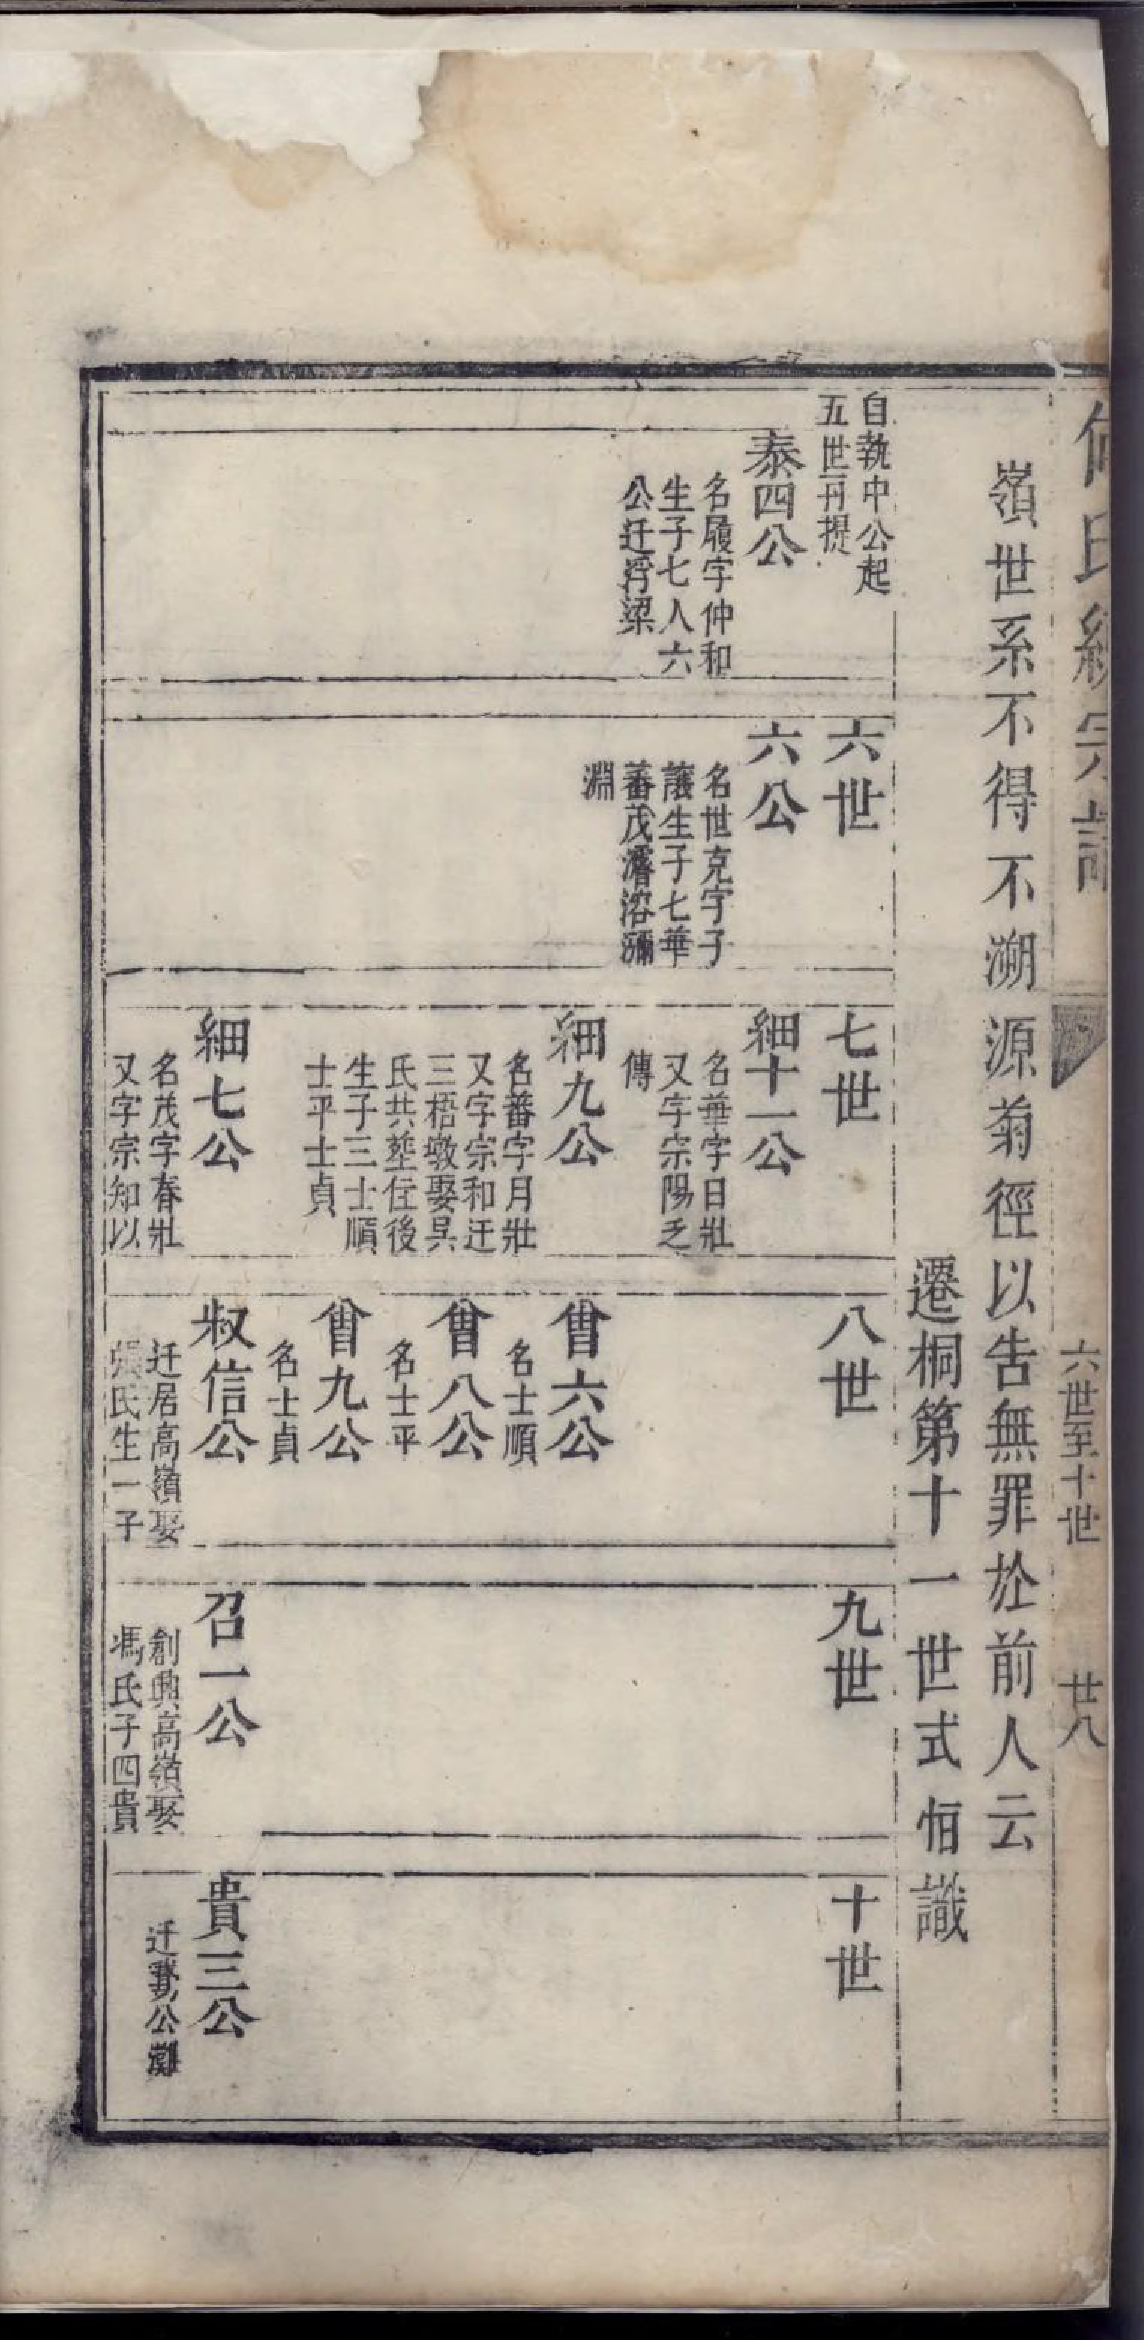 何氏統宗譜
六世至十世
廿八
嶺世系不得不溯源菊徑以告無罪於前人云
遷桐第十一世式恒識
自執中公起
五世再提
泰四公
名履字仲和
生子七人六
公迁浮梁
六世
六公
名世克字子
讓生子七華
蕃茂濬溶瀰
淵
七世
細十一公
名華字日壯
又字宗陽乏
傳
細九公
名蕃字月壯
又字宗和迁
三梧墩娶吳
氏共塟住後
生子三士順
士平士貞
細七公
名茂字春壯
又字宗知以
八世
曾六公
名士順
曾八公
名士平
曾九公
名士貞
叔信公
迁居高嶺娶
張氏生一子
九世
召一公
創興高嶺娶
馮氏子四貴
十世
貴三公
迁公灘